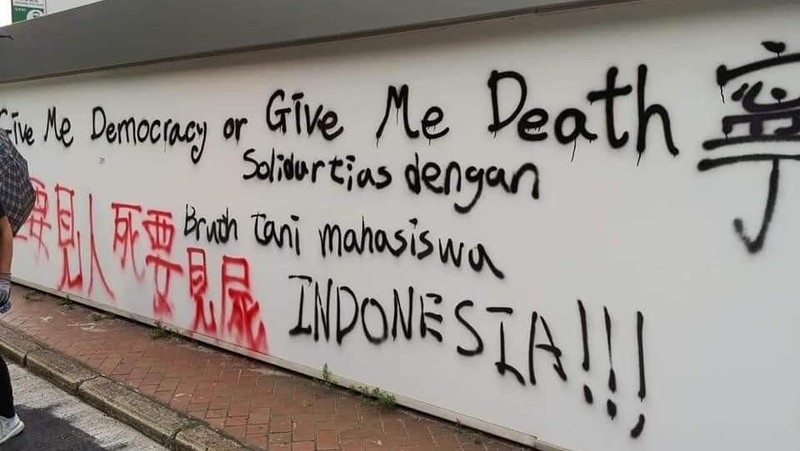 Give Me Democracy or Give Me Death
寧
Solidartias dengan
Bruth tani mahasiswa
INDONESIA!!!
要見人死要見屍